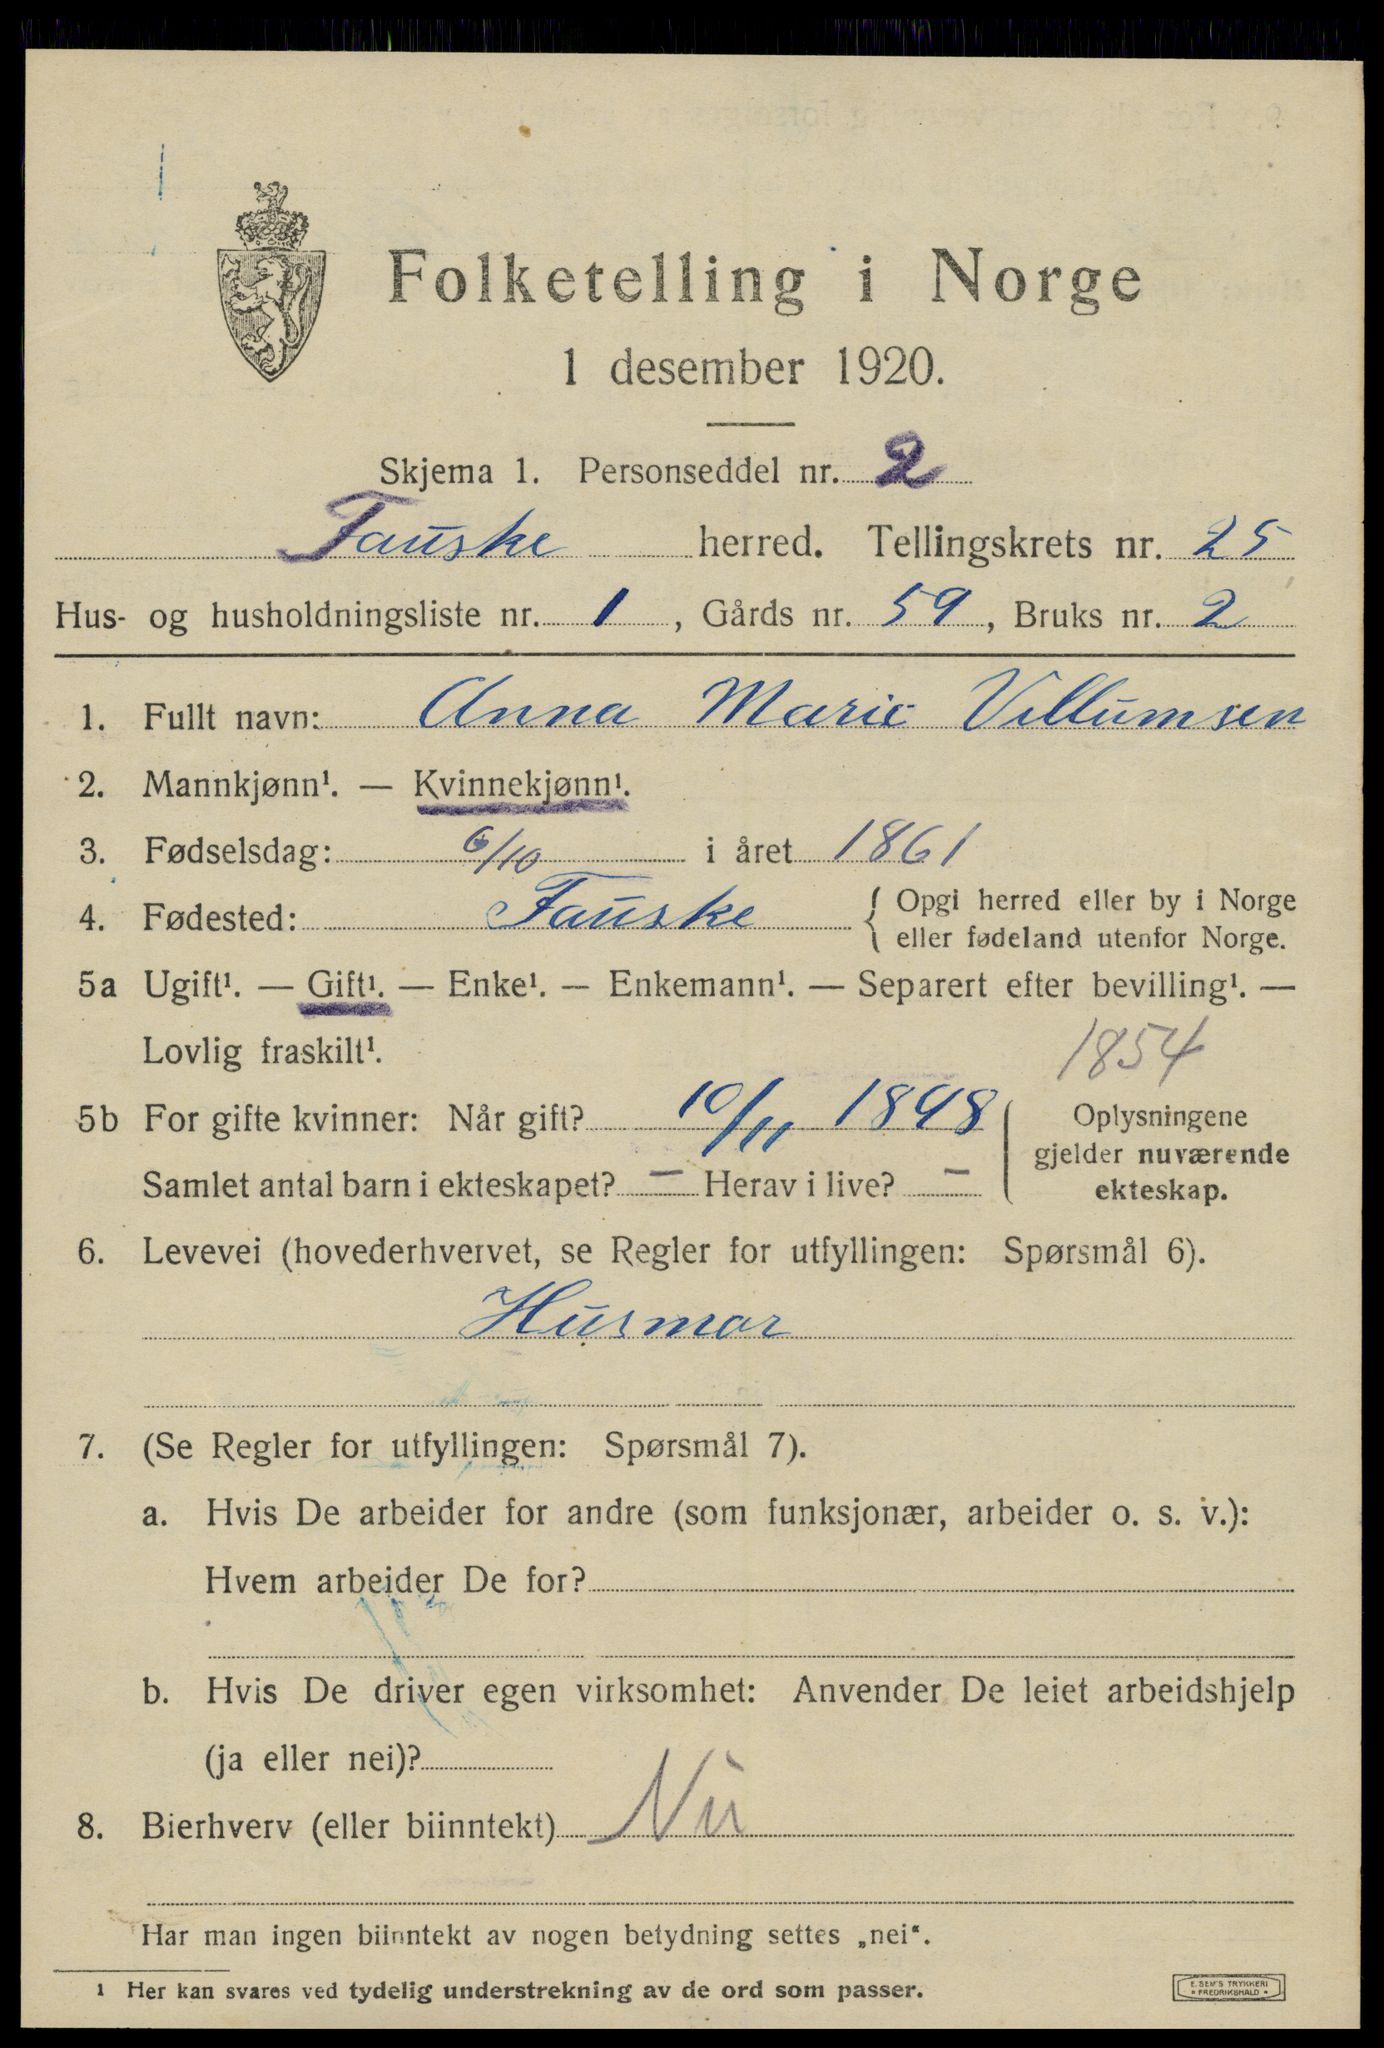 Folketelling i Norge
1 desember 1920.
Skjema 1. Personseddel nr. 2
Fauske herred. Tellingskrets nr. 25
Hus- og husholdningsliste nr. 1, Gårds nr. 59, Bruks nr. 2
1. Fullt navn: Anna Marie Villumsen
2. Mannkjønn¹. — Kvinnekjønn¹.
3. Fødselsdag: 6/10 i året 1861
4. Fødested: Fauske { Opgi herred eller by i Norge
eller fødeland utenfor Norge.
5a Ugift¹. — Gift¹. — Enke¹. — Enkemann¹. — Separert efter bevilling¹. —
Lovlig fraskilt¹.
1854
5b For gifte kvinner: Når gift? 10/11 1898 Oplysningene
gjelder nuværende
Samlet antal barn i ekteskapet? — Herav i live? — ekteskap.
6. Levevei (hovederhvervet, se Regler for utfyllingen: Spørsmål 6).
Husmor
7. (Se Regler for utfyllingen: Spørsmål 7).
a. Hvis De arbeider for andre (som funksjonær, arbeider o. s. v.):
Hvem arbeider De for?
b. Hvis De driver egen virksomhet: Anvender De leiet arbeidshjelp
(ja eller nei)?
8. Bierhverv (eller biinntekt) Nei
Har man ingen biinntekt av nogen betydning settes „nei“.
1 Her kan svares ved tydelig understrekning av de ord som passer.
E. SEM'S TRYKKERI
* FREDRIKSHALD *